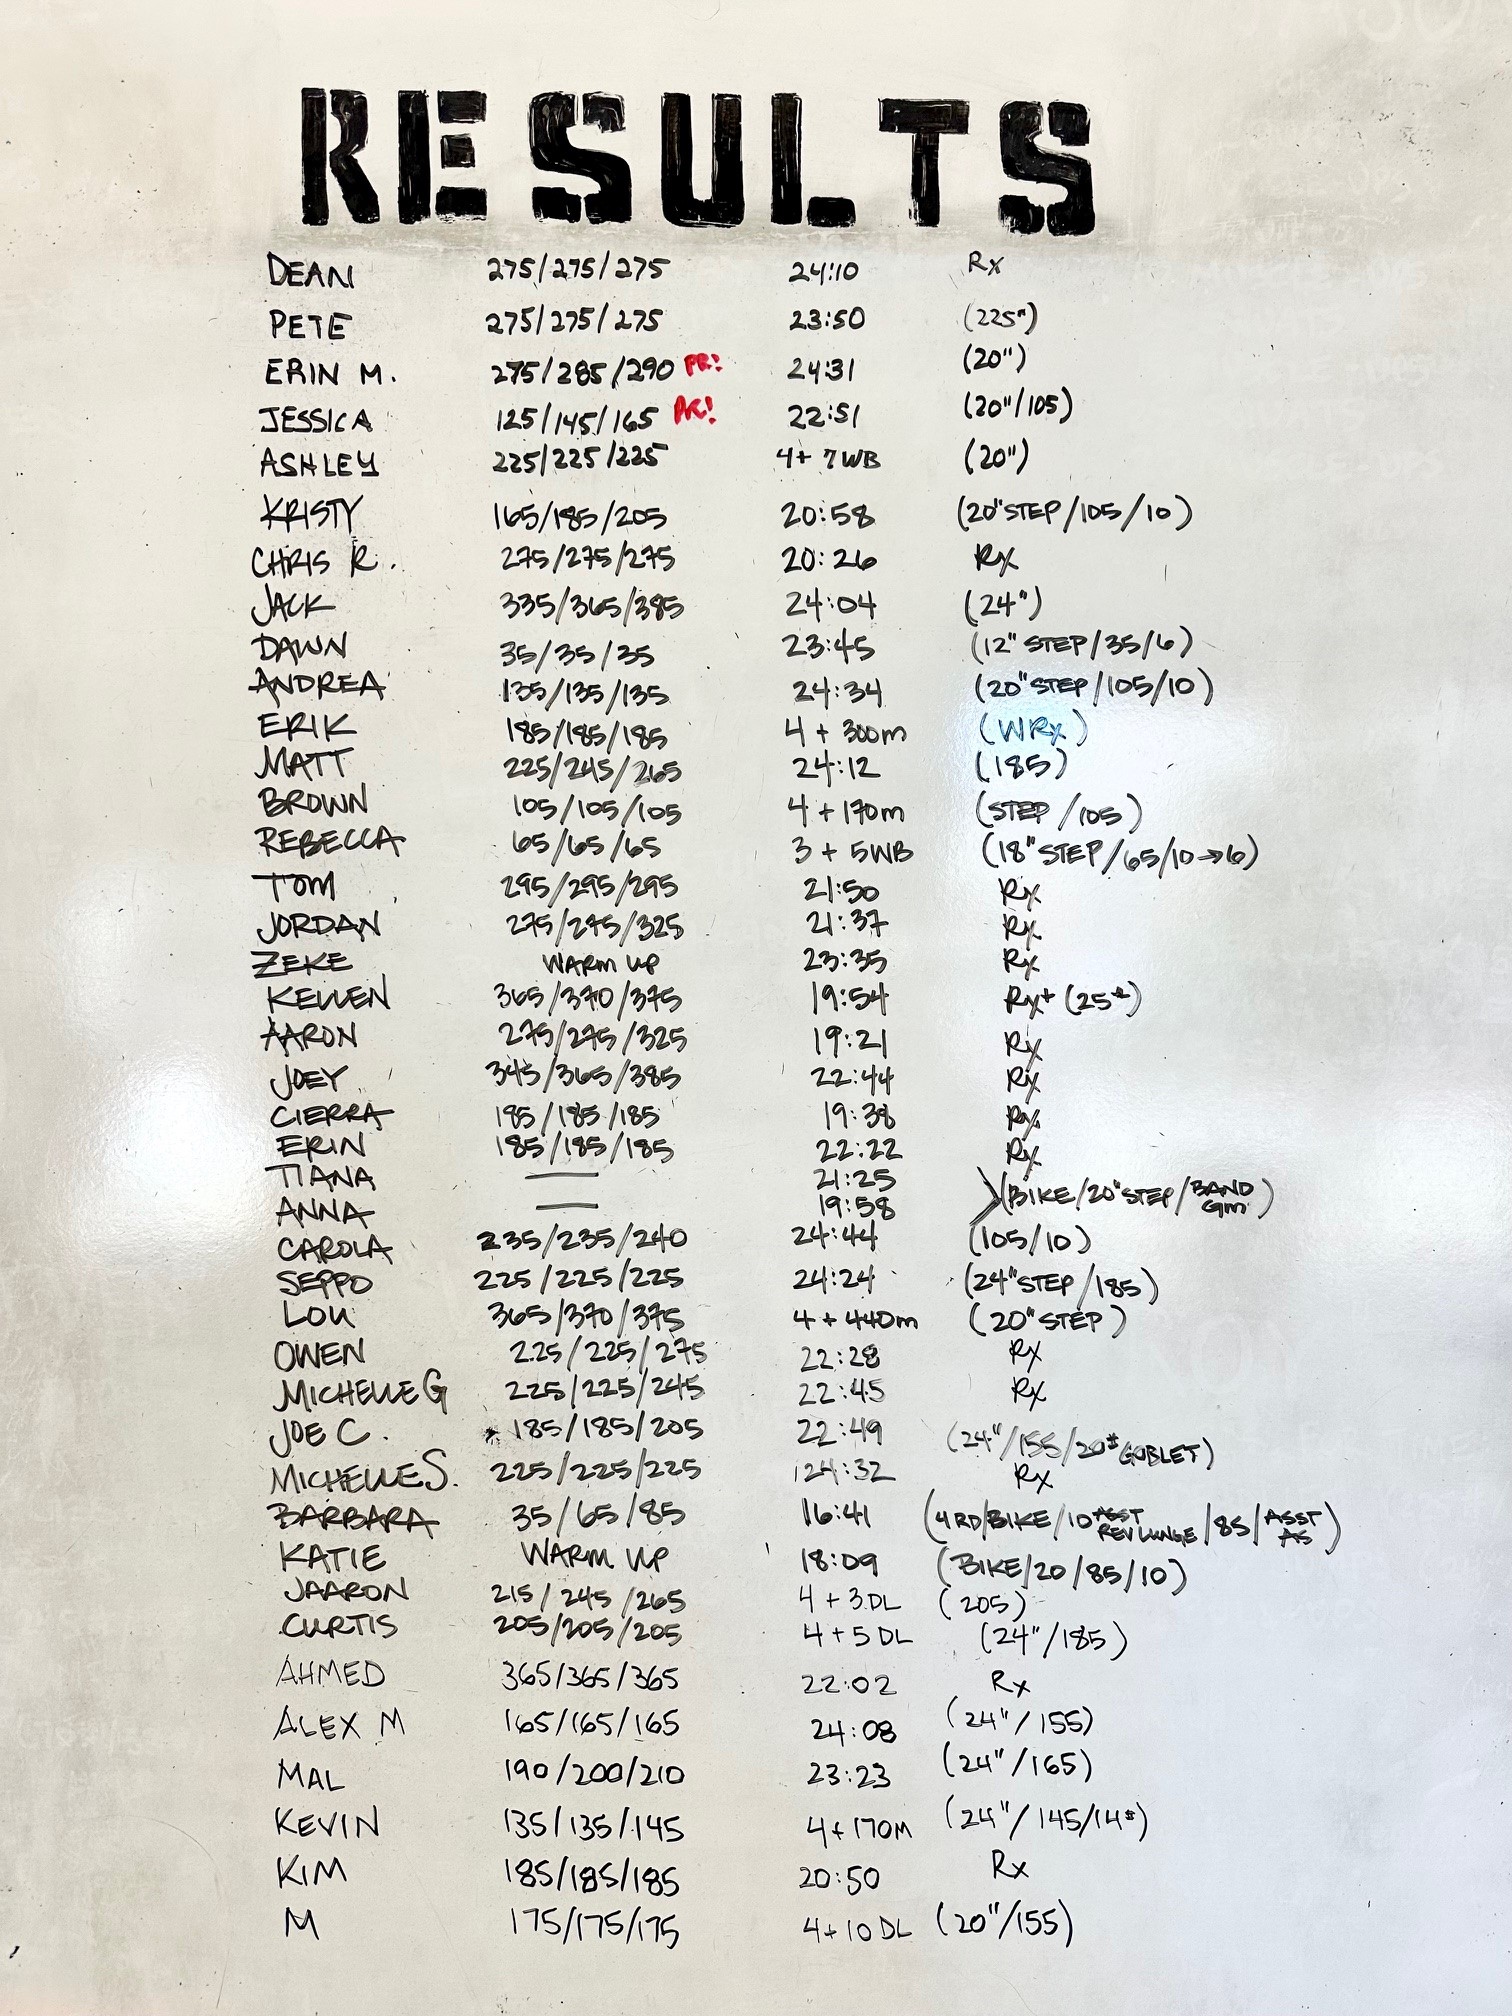 RESULTS
DEAN 275/275/275 24:10 Rx
PETE 275/275/275 23:50 (225#)
ERIN M. 275/285/290 PR! 24:31 (20")
JESSICA 125/145/165 PR! 22:51 (20"/105)
ASHLEY 225/225/225 4+7WB (20")
KRISTY 165/185/205 20:58 (20"STEP/105/10)
CHRIS R. 275/275/275 20:26 Rx
JACK 335/365/385 24:04 (24")
DAWN 35/35/35 23:45 (12" STEP/35/6)
ANDREA 135/135/135 24:34 (20"STEP/105/10)
ERIK 185/185/185 4 + 300m (WRx)
MATT 225/245/265 24:12 (185)
BROWN 105/105/105 4 + 170m (STEP/105)
REBECCA 65/65/65 3 + 5WB (18"STEP/65/10→6)
TOM 295/295/295 21:50 Rx
JORDAN 275/275/325 21:37 Rx
ZEKE WARM UP 23:35 Rx
KELLEN 365/370/375 19:54 Rx+ (25#)
AARON 275/275/325 19:21 Rx
JOEY 345/365/385 22:44 Rx
CIERRA 185/185/185 19:38 Rx
ERIN 185/185/185 22:22 Rx
TIANA — 21:25
ANNA — 19:58 (BIKE/20"STEP/BAND GM)
CAROLA 235/235/240 24:44 (105/10)
SEPPO 225/225/225 24:24 (24"STEP/185)
LOU 365/370/375 4 + 440m (20"STEP)
OWEN 225/225/275 22:28 Rx
MICHELLE G 225/225/245 22:45 Rx
JOE C. 185/185/205 22:49 (24"/155/20# GOBLET)
MICHELLE S. 225/225/225 24:32 Rx
BARBARA 35/65/85 16:41 (4RD/BIKE/10 ASST REV LUNGE/85/ASST AS)
KATIE WARM UP 18:09 (BIKE/20/85/10)
JAARON 215/245/265 4 + 3 DL (205)
CURTIS 205/205/205 4 + 5 DL (24"/185)
AHMED 365/365/365 22:02 Rx
ALEX M 165/165/165 24:08 (24"/155)
MAL 190/200/210 23:23 (24"/165)
KEVIN 135/135/145 4+170M (24"/145/14#)
KIM 185/185/185 20:50 Rx
M 175/175/175 4+10 DL (20"/155)